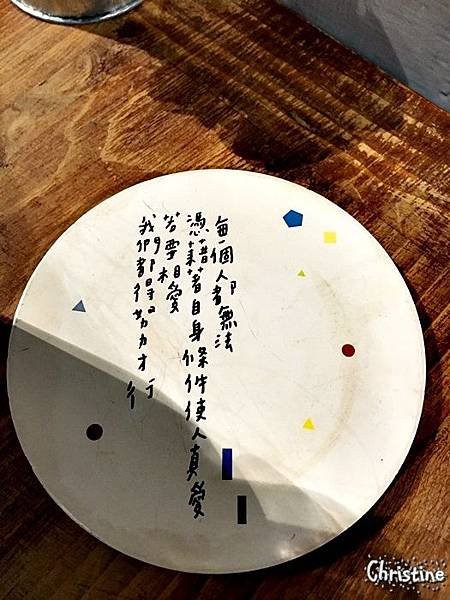 每個人都無法
憑藉著自身條件使人真愛
若要相愛
我們都得努力才行
Christine